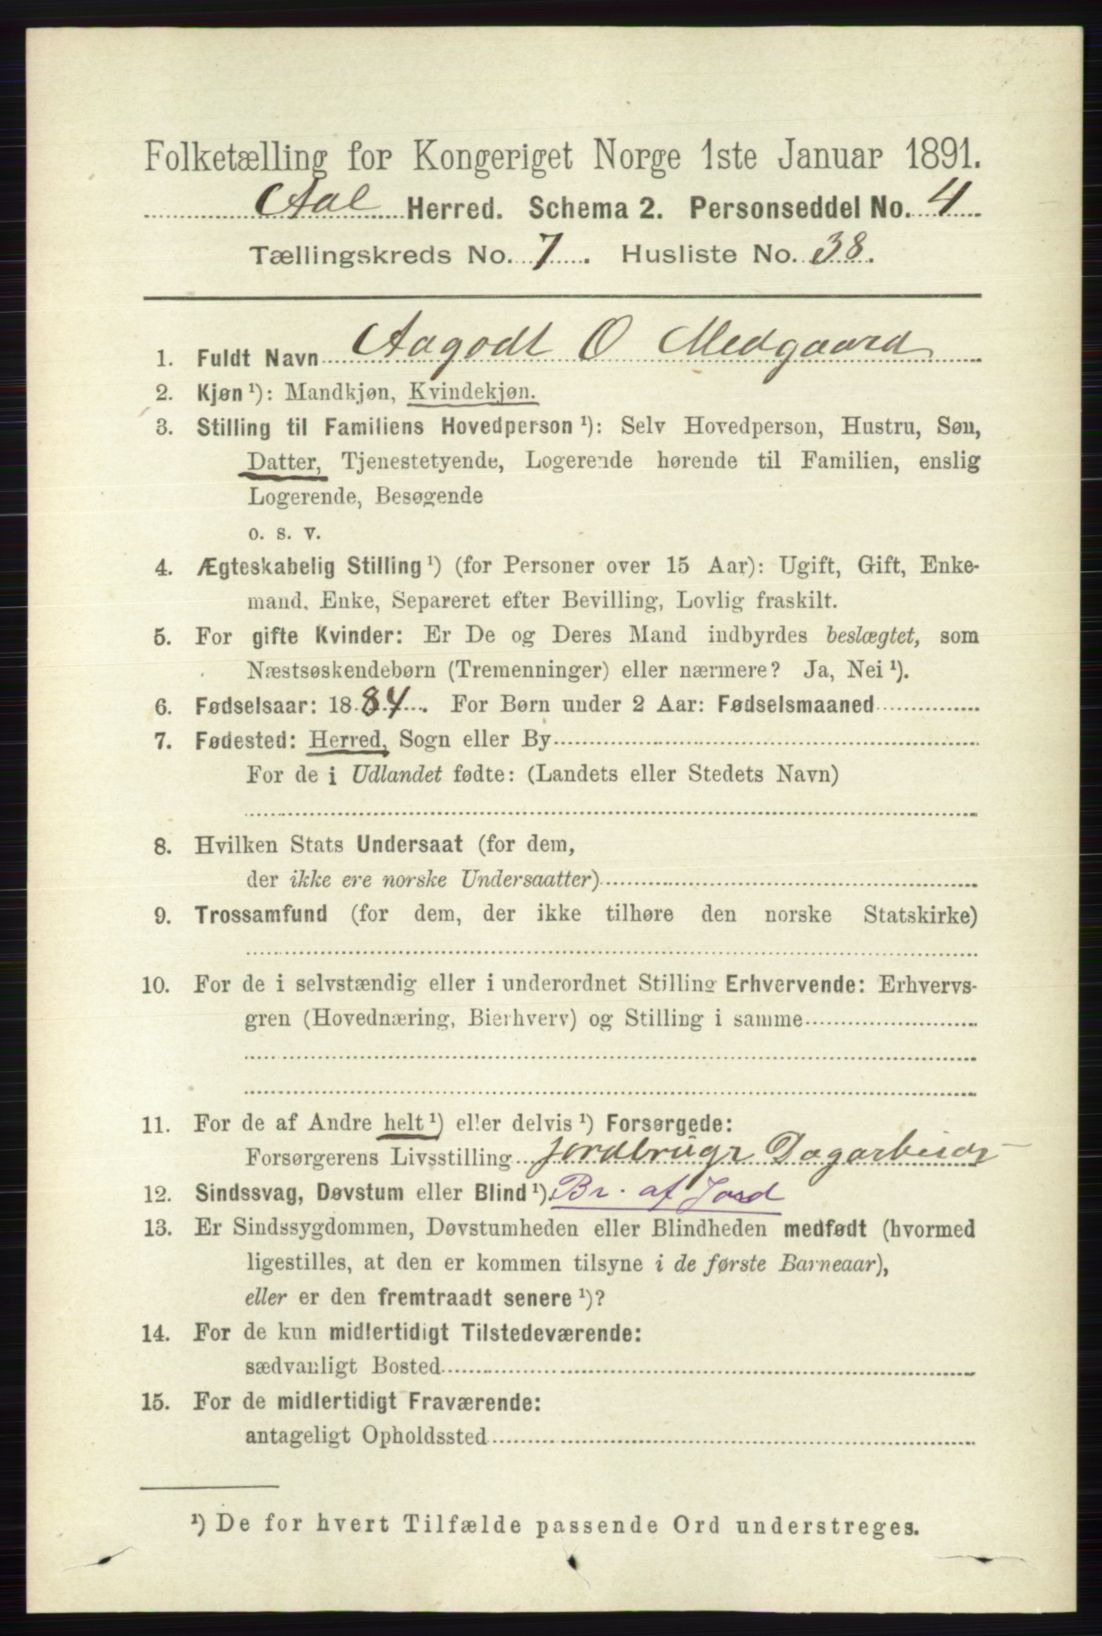 Folketælling for Kongeriget Norge 1ste Januar 1891.
Aal Herred. Schema 2. Personseddel No. 4
Tællingskreds No. 7. Husliste No. 38.
1. Fuldt Navn Aagodt O Medgaard
2. Kjøn ¹): Mandkjøn, Kvindekjøn.
3. Stilling til Familiens Hovedperson ¹): Selv Hovedperson, Hustru, Søn,
Datter, Tjenestetyende, Logerende hørende til Familien, enslig
Logerende, Besøgende
o. s. v.
4. Ægteskabelig Stilling ¹) (for Personer over 15 Aar): Ugift, Gift, Enke-
mand, Enke, Separeret efter Bevilling, Lovlig fraskilt.
5. For gifte Kvinder: Er De og Deres Mand indbyrdes beslægtet, som
Næstsøskendebørn (Tremenninger) eller nærmere? Ja, Nei ¹).
6. Fødselsaar: 1884. For Børn under 2 Aar: Fødselsmaaned
7. Fødested: Herred, Sogn eller By
For de i Udlandet fødte: (Landets eller Stedets Navn)
8. Hvilken Stats Undersaat (for dem,
der ikke ere norske Undersaatter)
9. Trossamfund (for dem, der ikke tilhøre den norske Statskirke)
10. For de i selvstændig eller i underordnet Stilling Erhvervende: Erhvervs-
gren (Hovednæring, Bierhverv) og Stilling i samme
11. For de af Andre helt ¹) eller delvis ¹) Forsørgede:
Forsørgerens Livsstilling jordbrugr Dagarbeidr
12. Sindssvag, Døvstum eller Blind ¹). Br. af Jord
13. Er Sindssygdommen, Døvstumheden eller Blindheden medfødt (hvormed
ligestilles, at den er kommen tilsyne i de første Barneaar),
eller er den fremtraadt senere ¹)?
14. For de kun midlertidigt Tilstedeværende:
sædvanligt Bosted
15. For de midlertidigt Fraværende:
antageligt Opholdssted
¹) De for hvert Tilfælde passende Ord understreges.